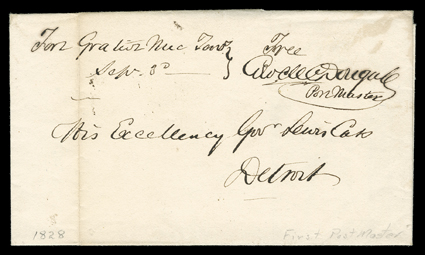 Fort Gratiot Mic Terry
Sepr. 3d
Free
McDougall
Post Master
His Excellency Govr Lewis Cass
Detroit
8
1828
First Post Master